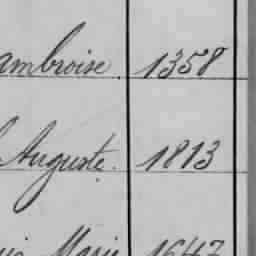 ambroise. 1358
Auguste. 1813
Marie 1647